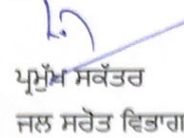 ਪ੍ਰਮੁੱਖ ਸਕੱਤਰ
ਜਲ ਸਰੋਤ ਵਿਭਾਗ